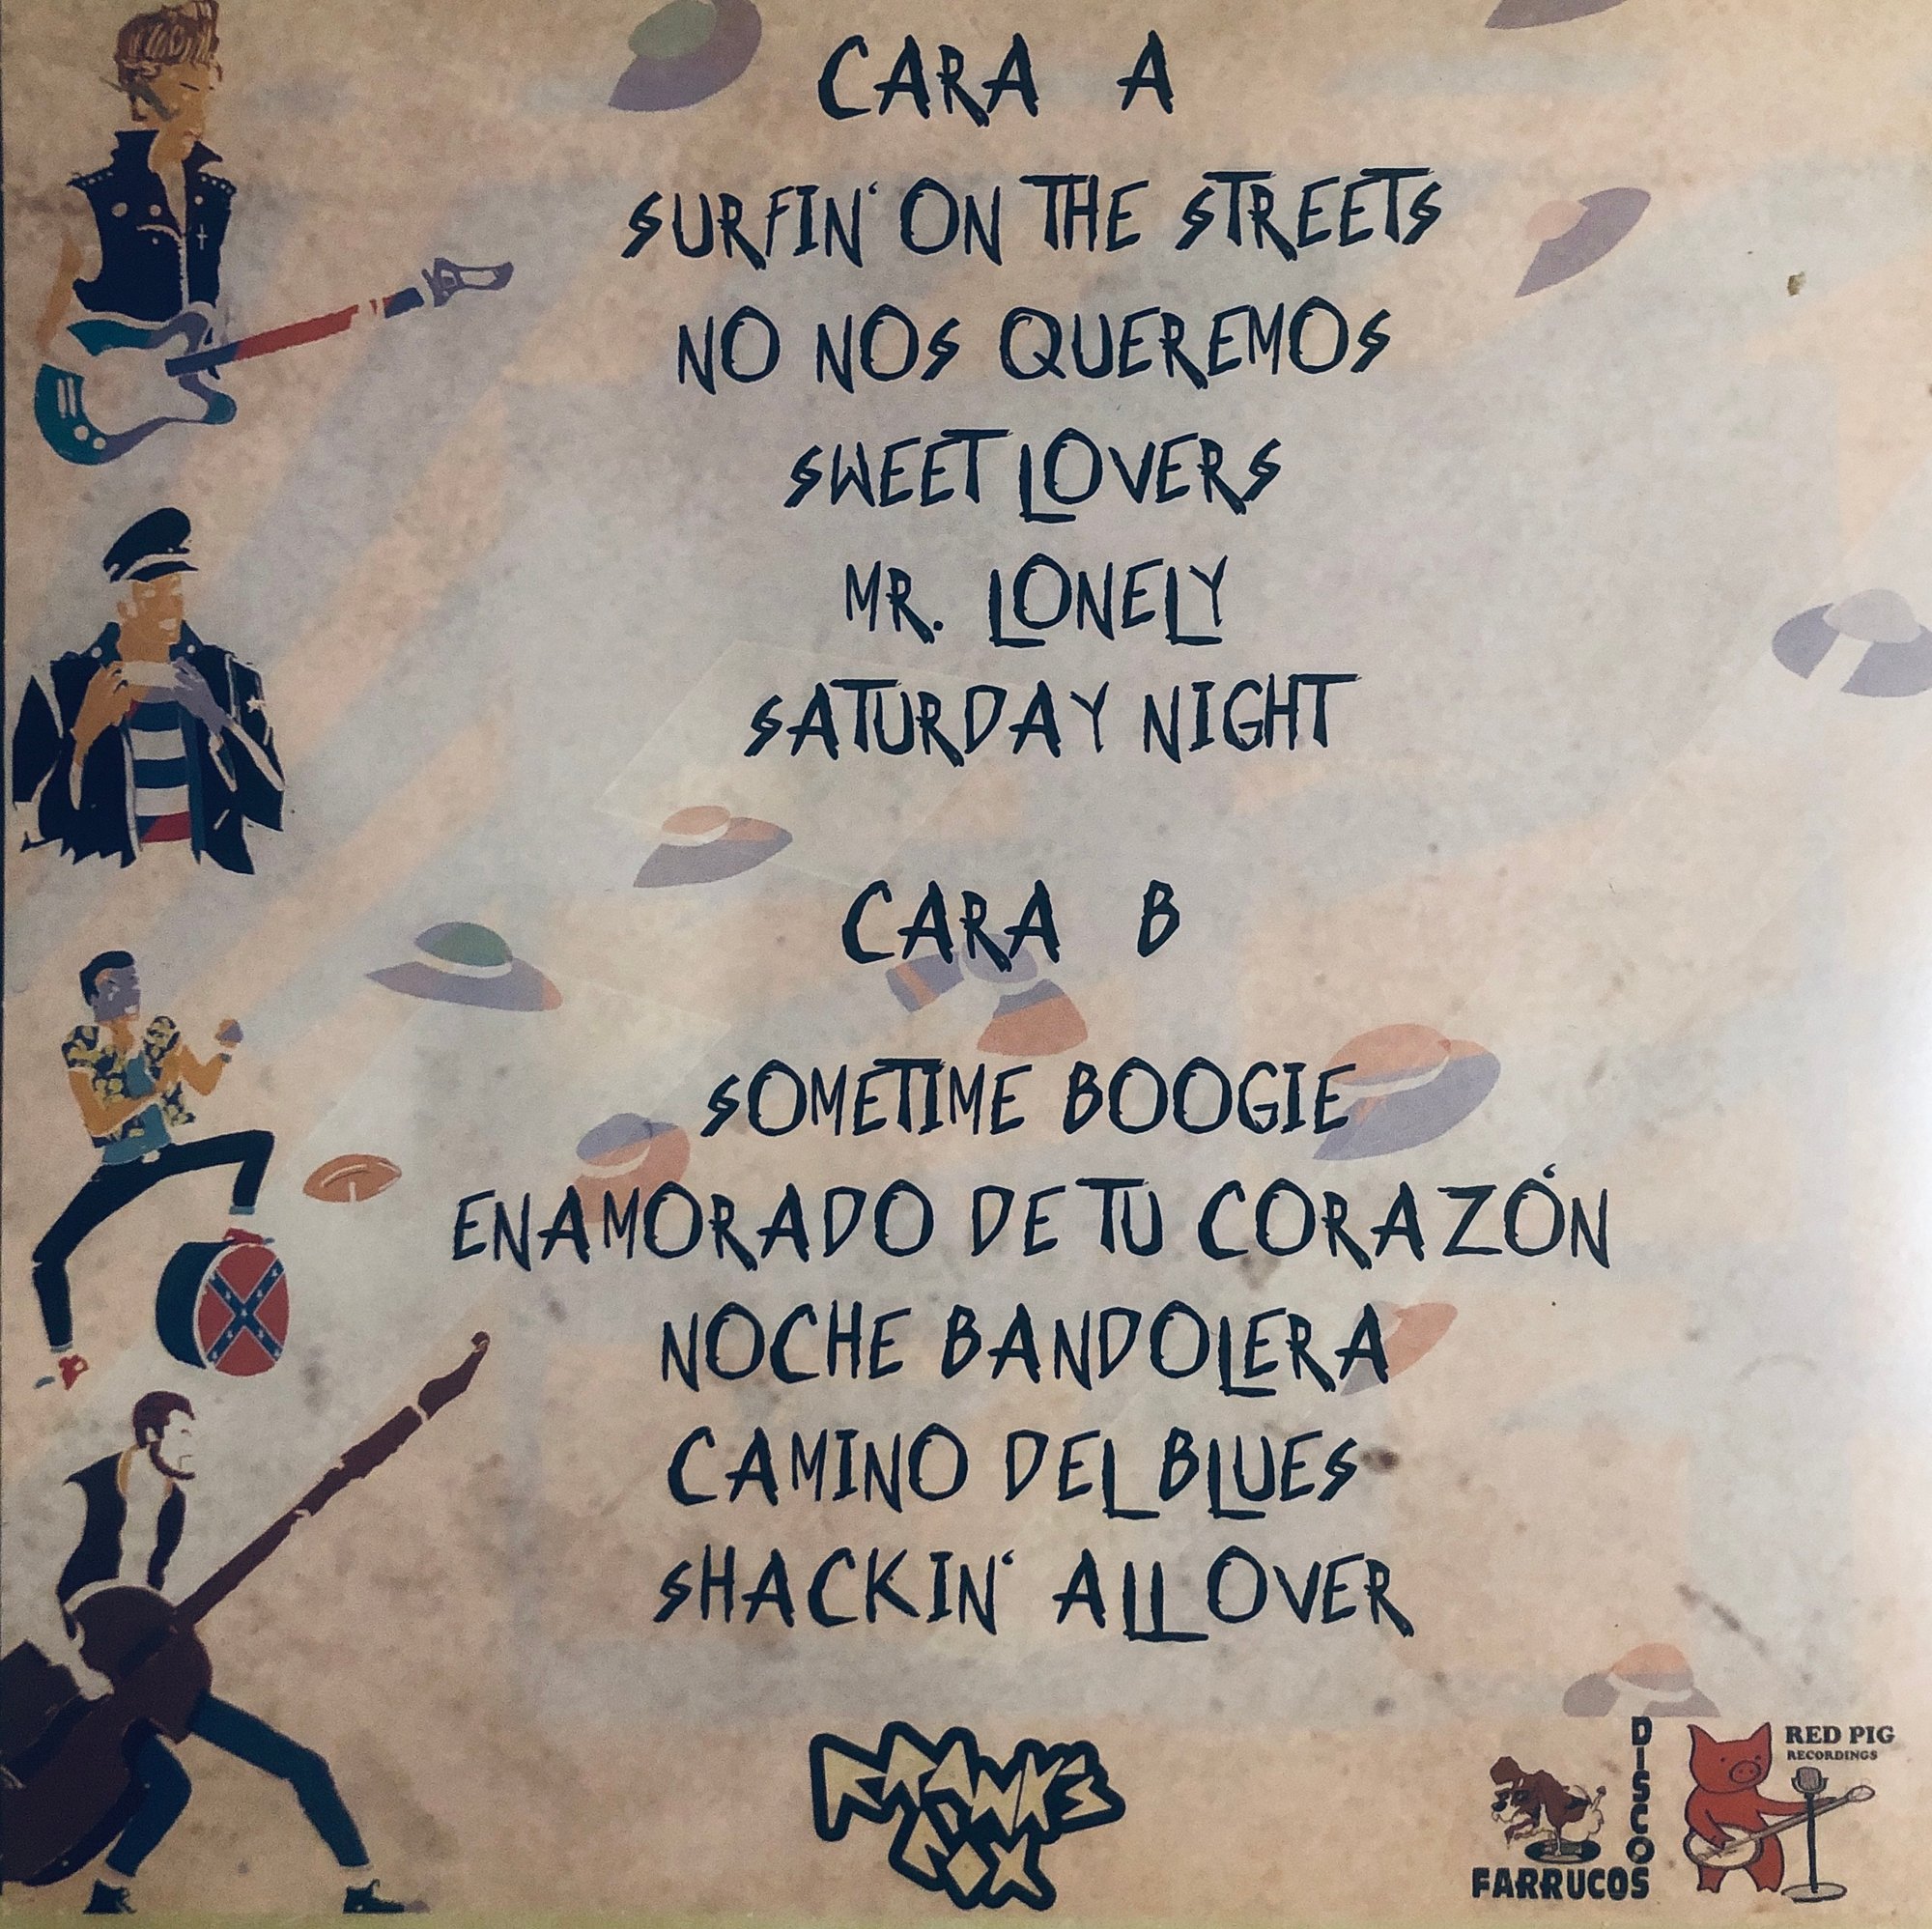 CARA A
SURFIN' ON THE STREETS
NO NOS QUEREMOS
SWEET LOVERS
MR. LONELY
SATURDAY NIGHT
CARA B
SOMETIME BOOGIE
ENAMORADO DE TU CORAZÓN
NOCHE BANDOLERA
CAMINO DEL BLUES
SHACKIN' ALL OVER
DISCOS
FARRUCOS
RED PIG
RECORDINGS